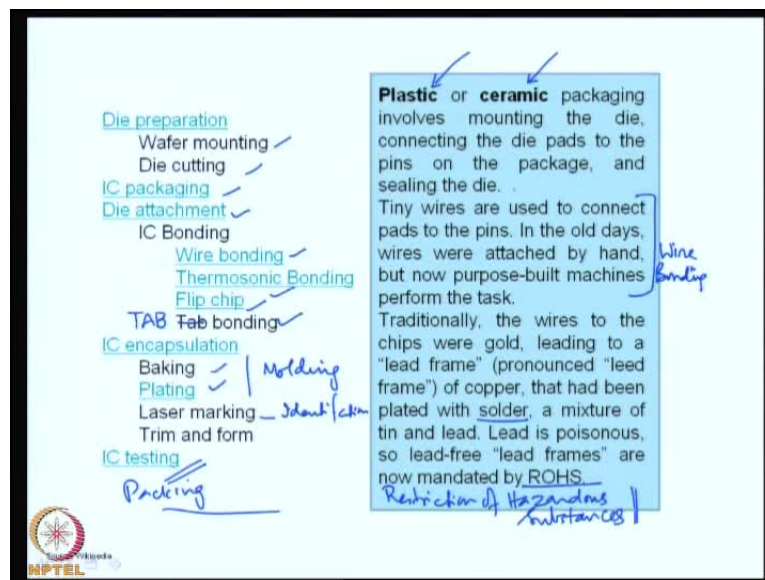 Die preparation
Wafer mounting
Die cutting
IC packaging
Die attachment
IC Bonding
Wire bonding
Thermosonic Bonding
Flip chip
TAB Tab bonding
IC encapsulation
Baking
Plating
Molding
Laser marking
Trim and form
IC testing
Packing
Plastic or ceramic packaging
involves mounting the die,
connecting the die pads to the
pins on the package, and
sealing the die.
Tiny wires are used to connect
pads to the pins. In the old days,
wires were attached by hand,
but now purpose-built machines
perform the task.
Wire
Bonding
Traditionally, the wires to the
chips were gold, leading to a
“lead frame” (pronounced “leed
frame”) of copper, that had been
plated with solder, a mixture of
tin and lead. Lead is poisonous,
so lead-free “lead frames” are
now mandated by ROHS.
Restriction of Hazardous
Substances
Source: Wikipedia
NPTEL